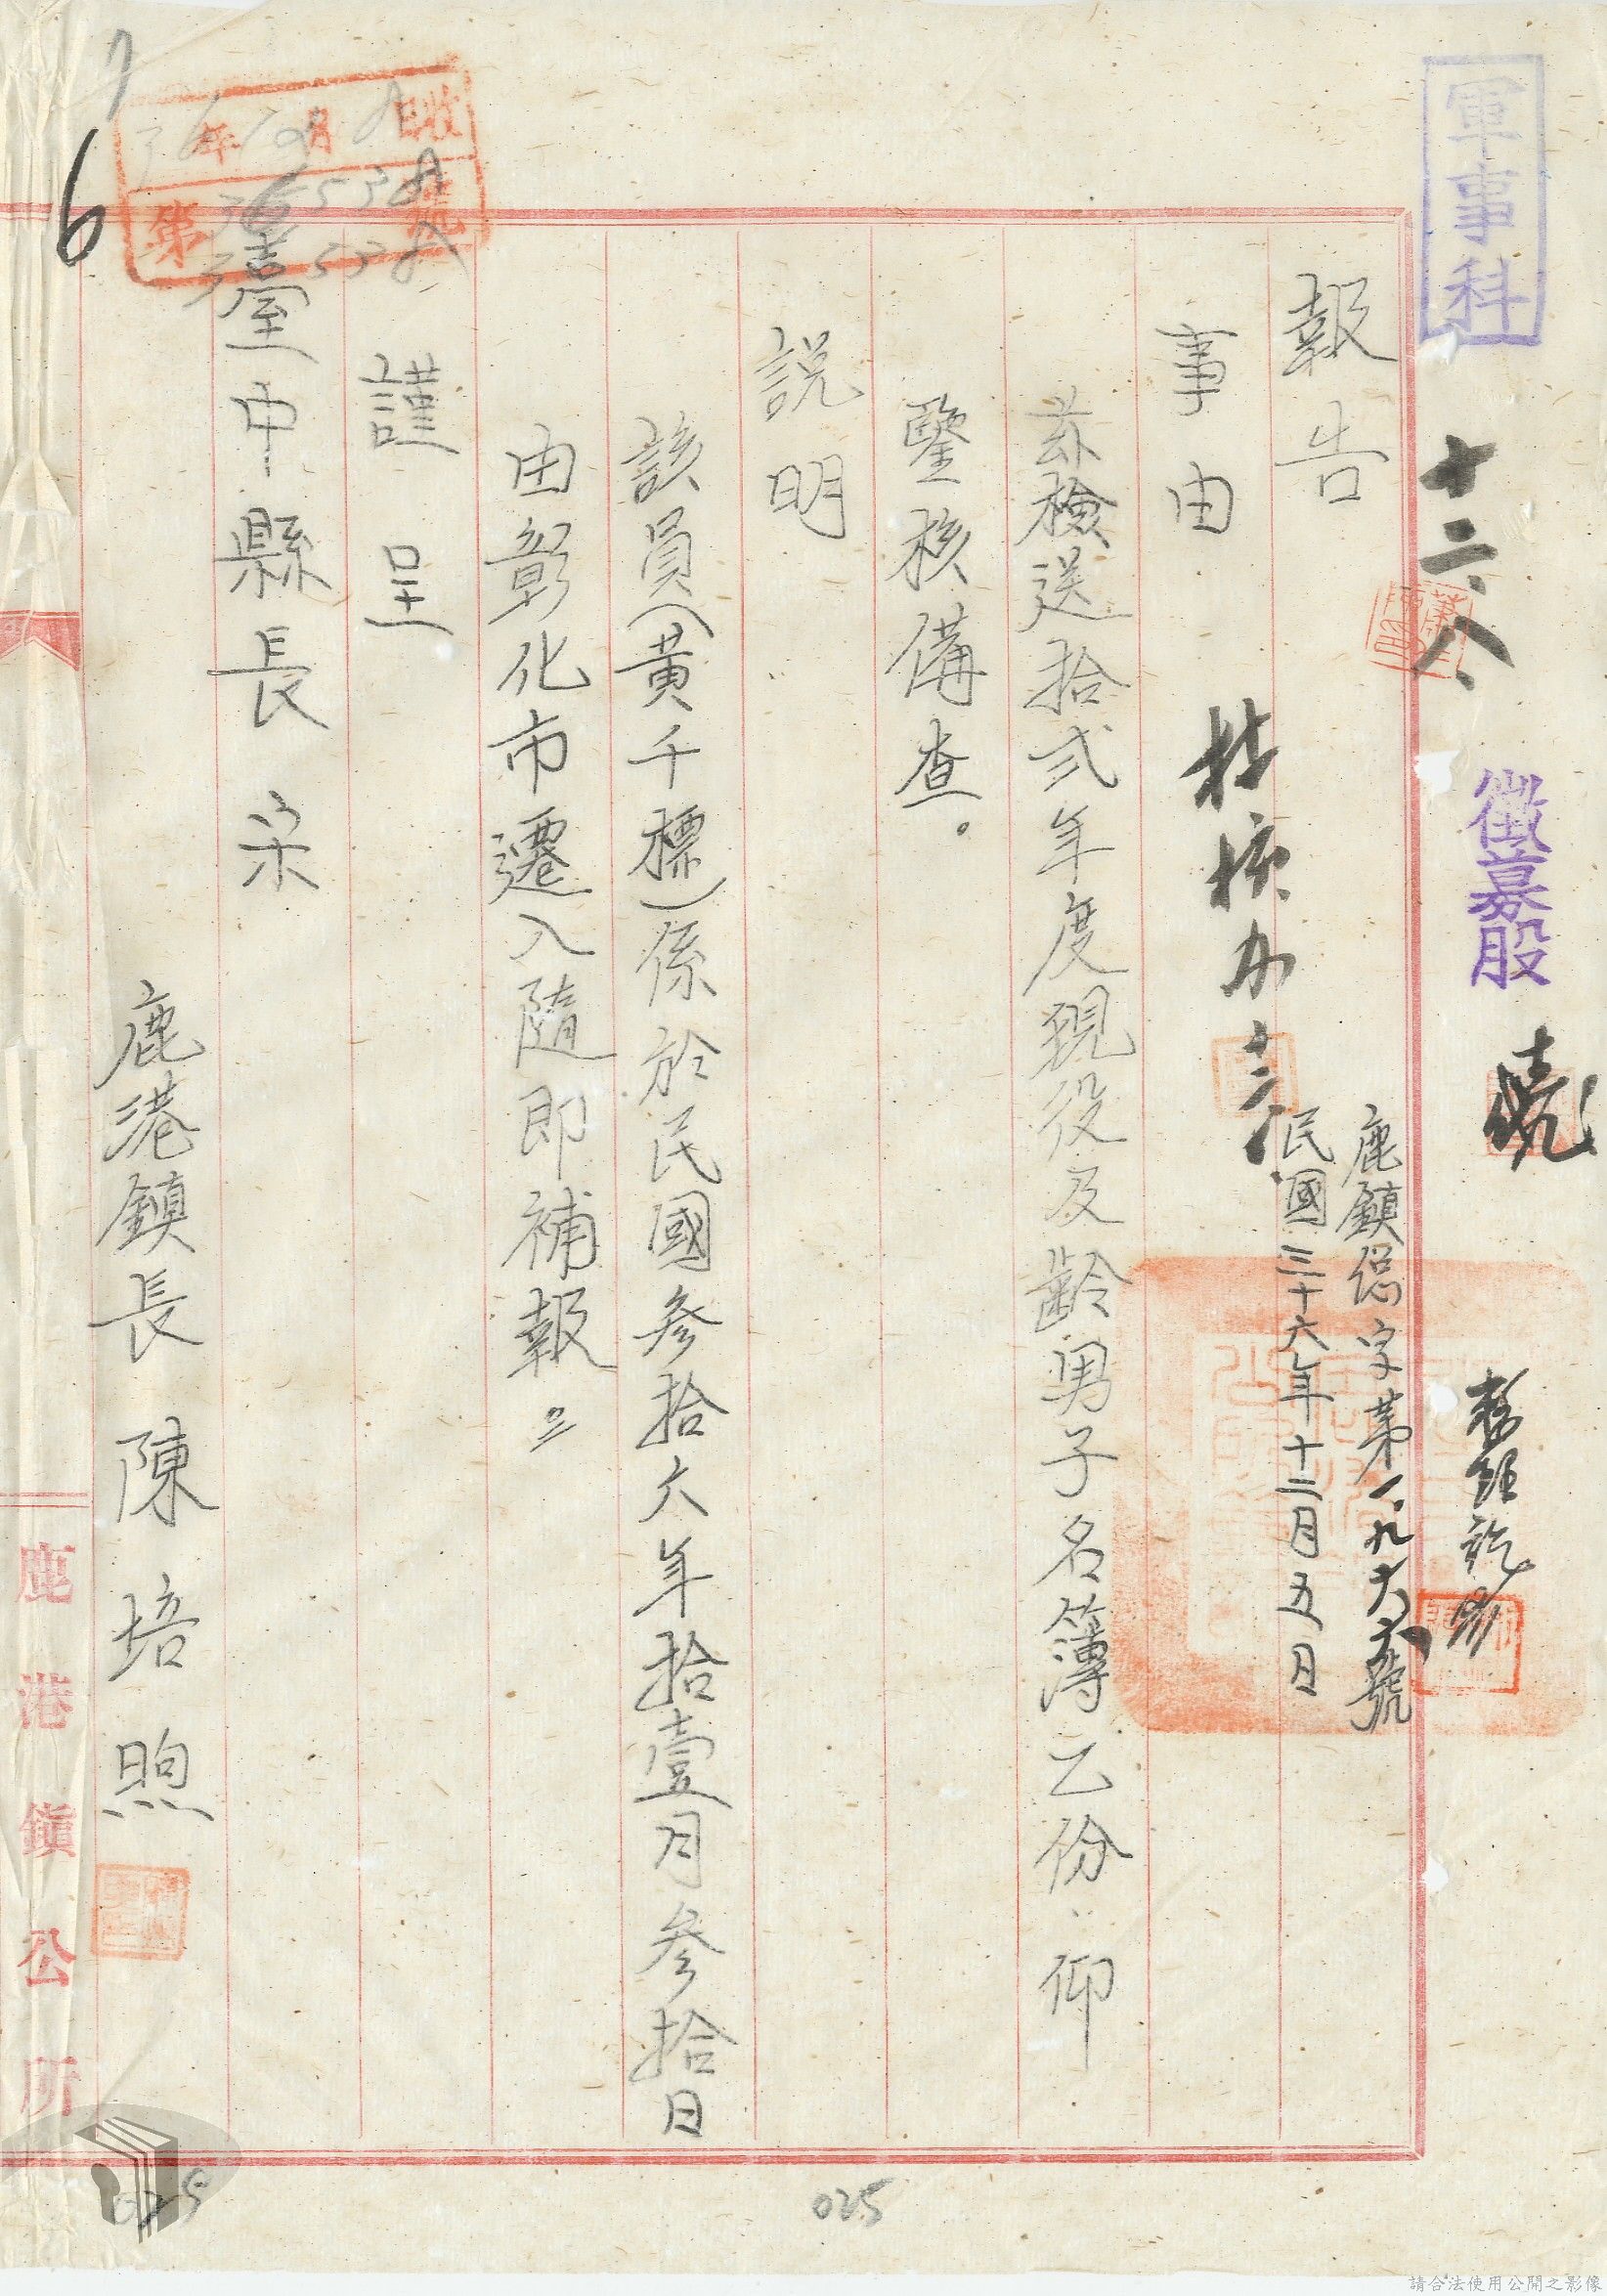 軍事科
十二、八、
徵募股
鹿鎮總字第一九六六號
民國三十六年十二月五日
報告
核办
事由
茲檢送拾弍年度現役及齡男子名簿乙份、仰
鑒核備查。
說明
該員(黃千標)係於民國叁拾六年拾壹月叁拾日
由彰化市遷入隨即補報。
謹呈
臺中縣長宋
鹿港鎮長 陳培煦
年 月 日收
第 號
36538
6
鹿港鎮公所
025
025
請合法使用公開之影像